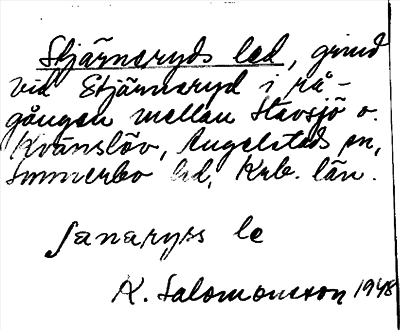 Stjärneryds led, grind
vid Stjärneryd i rå-
gången mellan Stavsjö o.
Kvänslöv, Angelstads sn,
Sunnerbo hd, Krb. län.
le
K. Salomonsson 1948